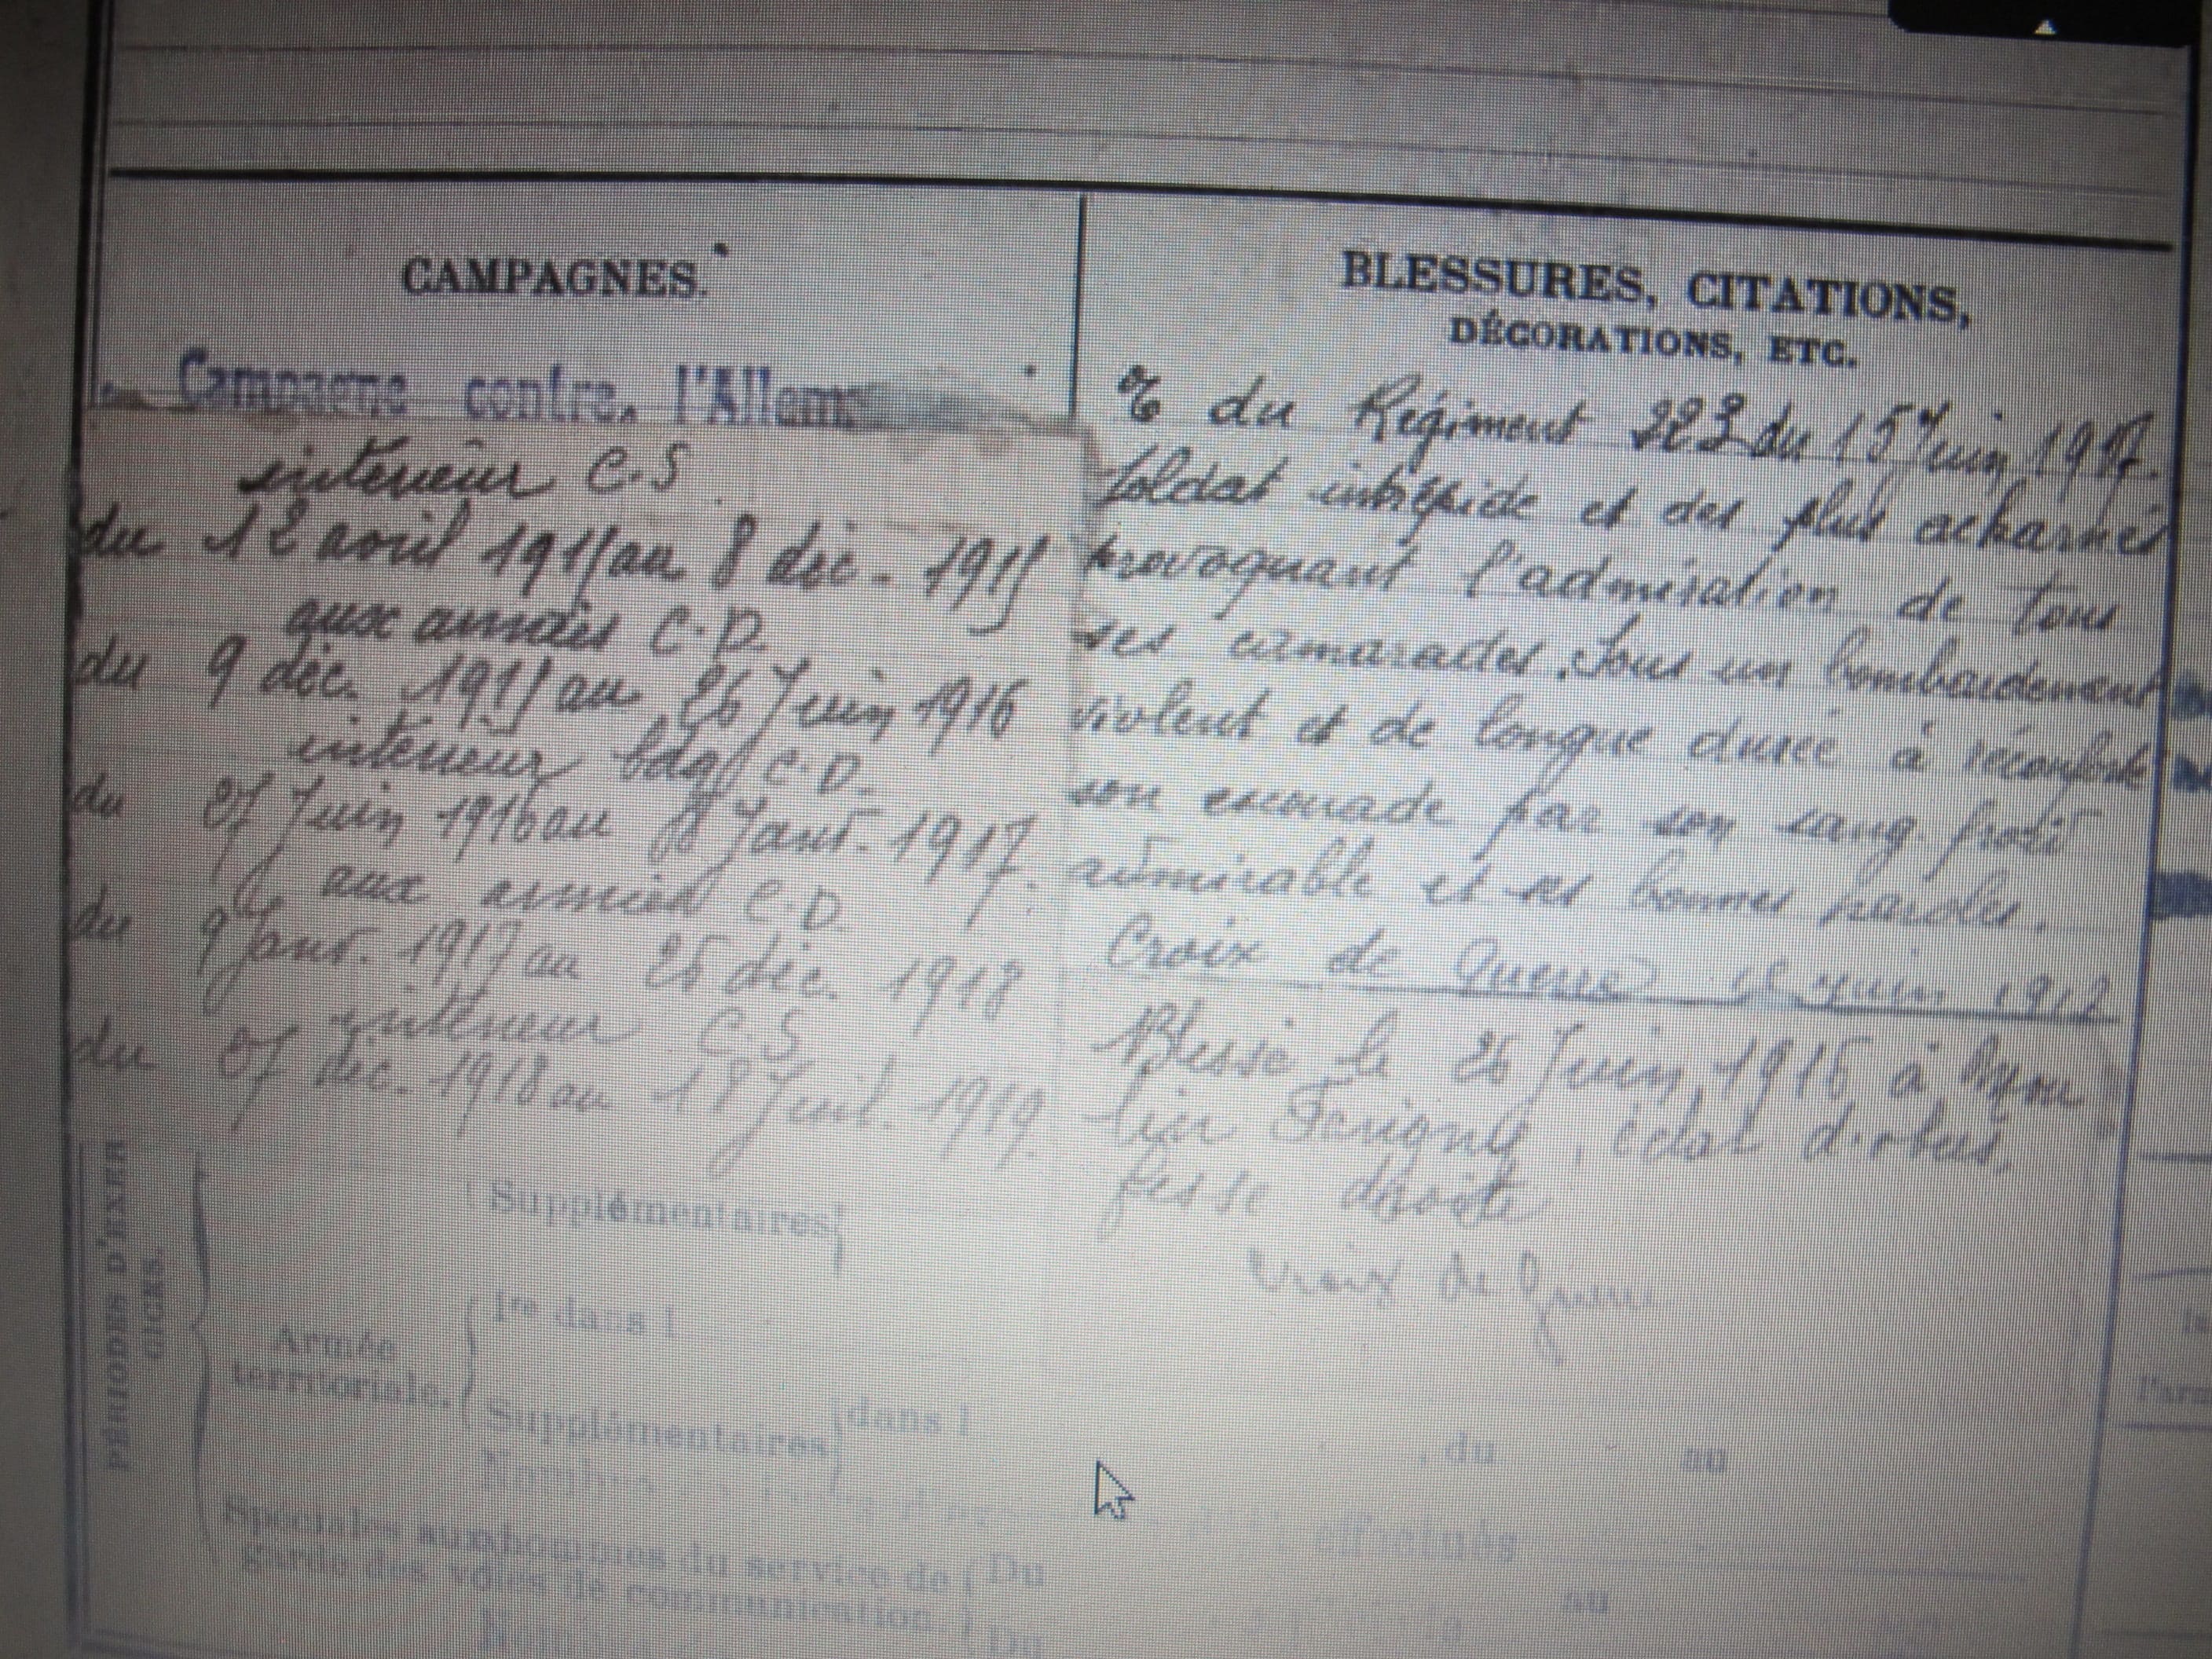 CAMPAGNES.
Campagne contre l'Allem
intérieur C.S
du 12 avril 1915 au 8 déc. 1915
aux armées C.D.
du 9 déc. 1915 au 26 Juin 1916
intérieur C.D.
du 27 Juin 1916 au 8 Janv. 1917.
aux armées C.D.
du 9 Janv. 1917 au 26 déc. 1918
intérieur C.S
du 27 déc. 1918 au 18 Juil. 1919.
BLESSURES, CITATIONS,
DÉCORATIONS, ETC.
du Régiment 223 du 15 Juin 1917.
Soldat intrépide et des plus acharnés
provoquant l'admiration de tous
ses camarades. Sous un bombardement
violent et de longue durée à réconforté
son escouade par son sang-froid
admirable et ses bonnes paroles.
Croix de Guerre Juin
Blessé le 26 Juin 1916 à Mou
lin, éclat d'obus,
fesse droite
Croix de Guerre
PÉRIODES D'EXER
CICES.
Supplémentaires
Armée
territoriale.
1re dans l
Supplémentaires
dans l
du au
Nombre
effectués
Spéciales aux hommes du service de
garde des voies de communication.
Du
au
Du